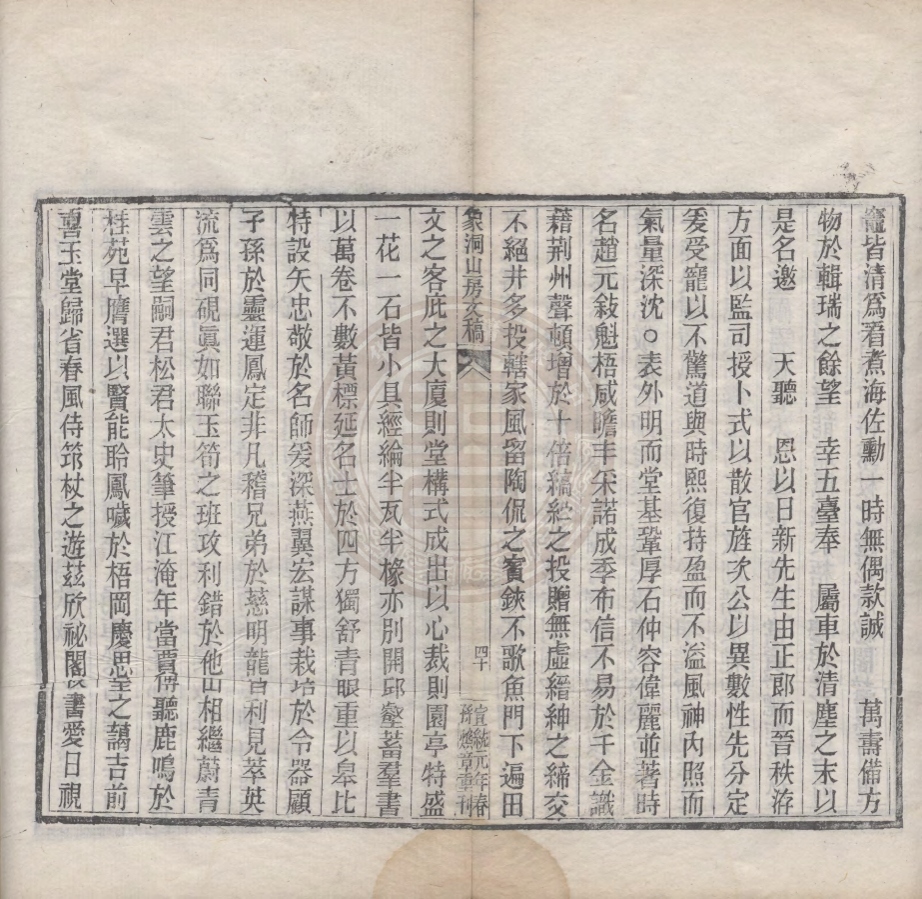 竈皆清爲看煮海佐勳一時無偶款誠　　萬壽備方
物於輯瑞之餘望　　幸五臺奉　屬車於清塵之末以
是名邀　　天聽　　恩以日新先生由正郎而晉秩洊
方面以監司授卜式以散官旌次公以異數性先分定
爰受寵以不驚道與時熙復持盈而不溢風神內照而
氣量深沈〇表外明而堂基鞏厚石仲容偉麗並著時
名趙元敍魁梧咸瞻丰采諾成季布信不易於千金識
藉荆州聲頓增於十倍縞紵之投贈無虛縉紳之締交
不絕井多投轄家風留陶侃之賓鋏不歌魚門下遍田
文之客庇之大廈則堂構式成出以心裁則園亭特盛
象洞山房文稿　四十　宣統元年春　豫燃章重刊
一花一石皆小具經綸半瓦半椽亦別開邱壑蓄羣書
以萬卷不數黃標延名士於四方獨舒青眼重以皋比
特設矢忠敬於名師爰深燕翼宏謀事栽培於令器顧
子孫於靈運鳳定非凡稽兄弟於慈明龍占利見萃英
流爲同硯眞如聯玉筍之班攻利錯於他山相繼蔚青
雲之望嗣君松君太史筆授江淹年當賈傅聽鹿鳴於
桂苑早膺選以賢能聆鳳噦於梧岡慶思皇之藹吉前
喜玉堂歸省春風侍笻杖之遊茲欣祕閣書愛日視